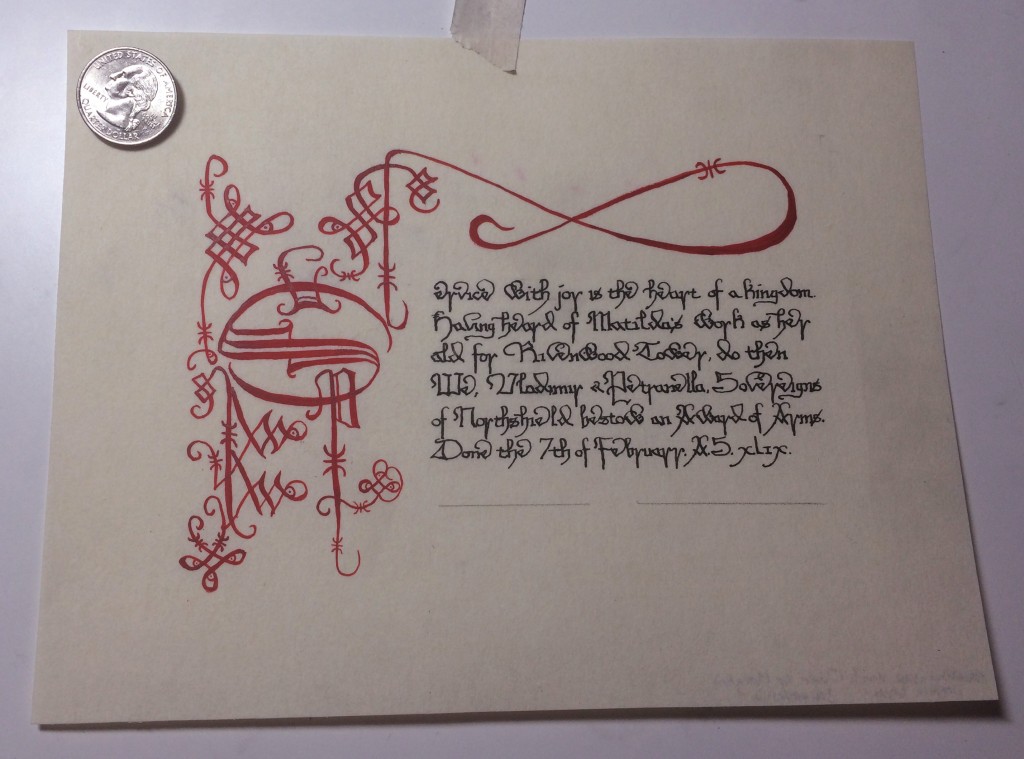 UNITED STATES OF AMERICA
LIBERTY
QUARTER DOLLAR
Service With joy is the heart of a kingdom.
Having heard of Matilda's Work as her
ald for RavenWood Tower, do then
We, Vladimir & Petranella, Sovereigns
of Northshield bestow an Award of Arms.
Done the 7th of February, A.S. xlix.